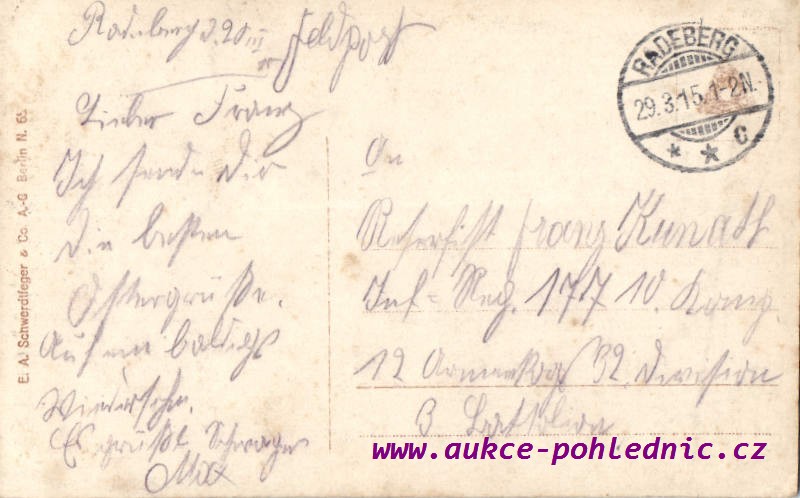 Radeberg d. 28/III
Feldpost
Lieber Franz
Ich sende Dir
die besten
Ostergrüße.
Auf ein baldiges
Wiedersehn.
Es grüßt Schwager
Max
RADEBERG
29.3.15.1-2N.
* * c
An
Reservist Franz Kunath
Inf=Reg. 177 10. Komp.
12 Armeekorps 32. Division
3 Batallion
E. A. Schwerdtfeger & Co. A.-G Berlin N. 65
www.aukce-pohlednic.cz